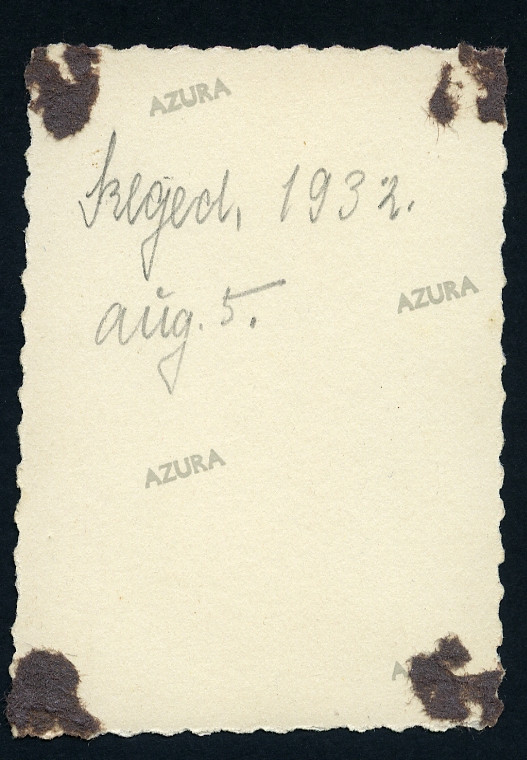 AZURA
Szeged, 1932.
aug. 5.
AZURA
AZURA